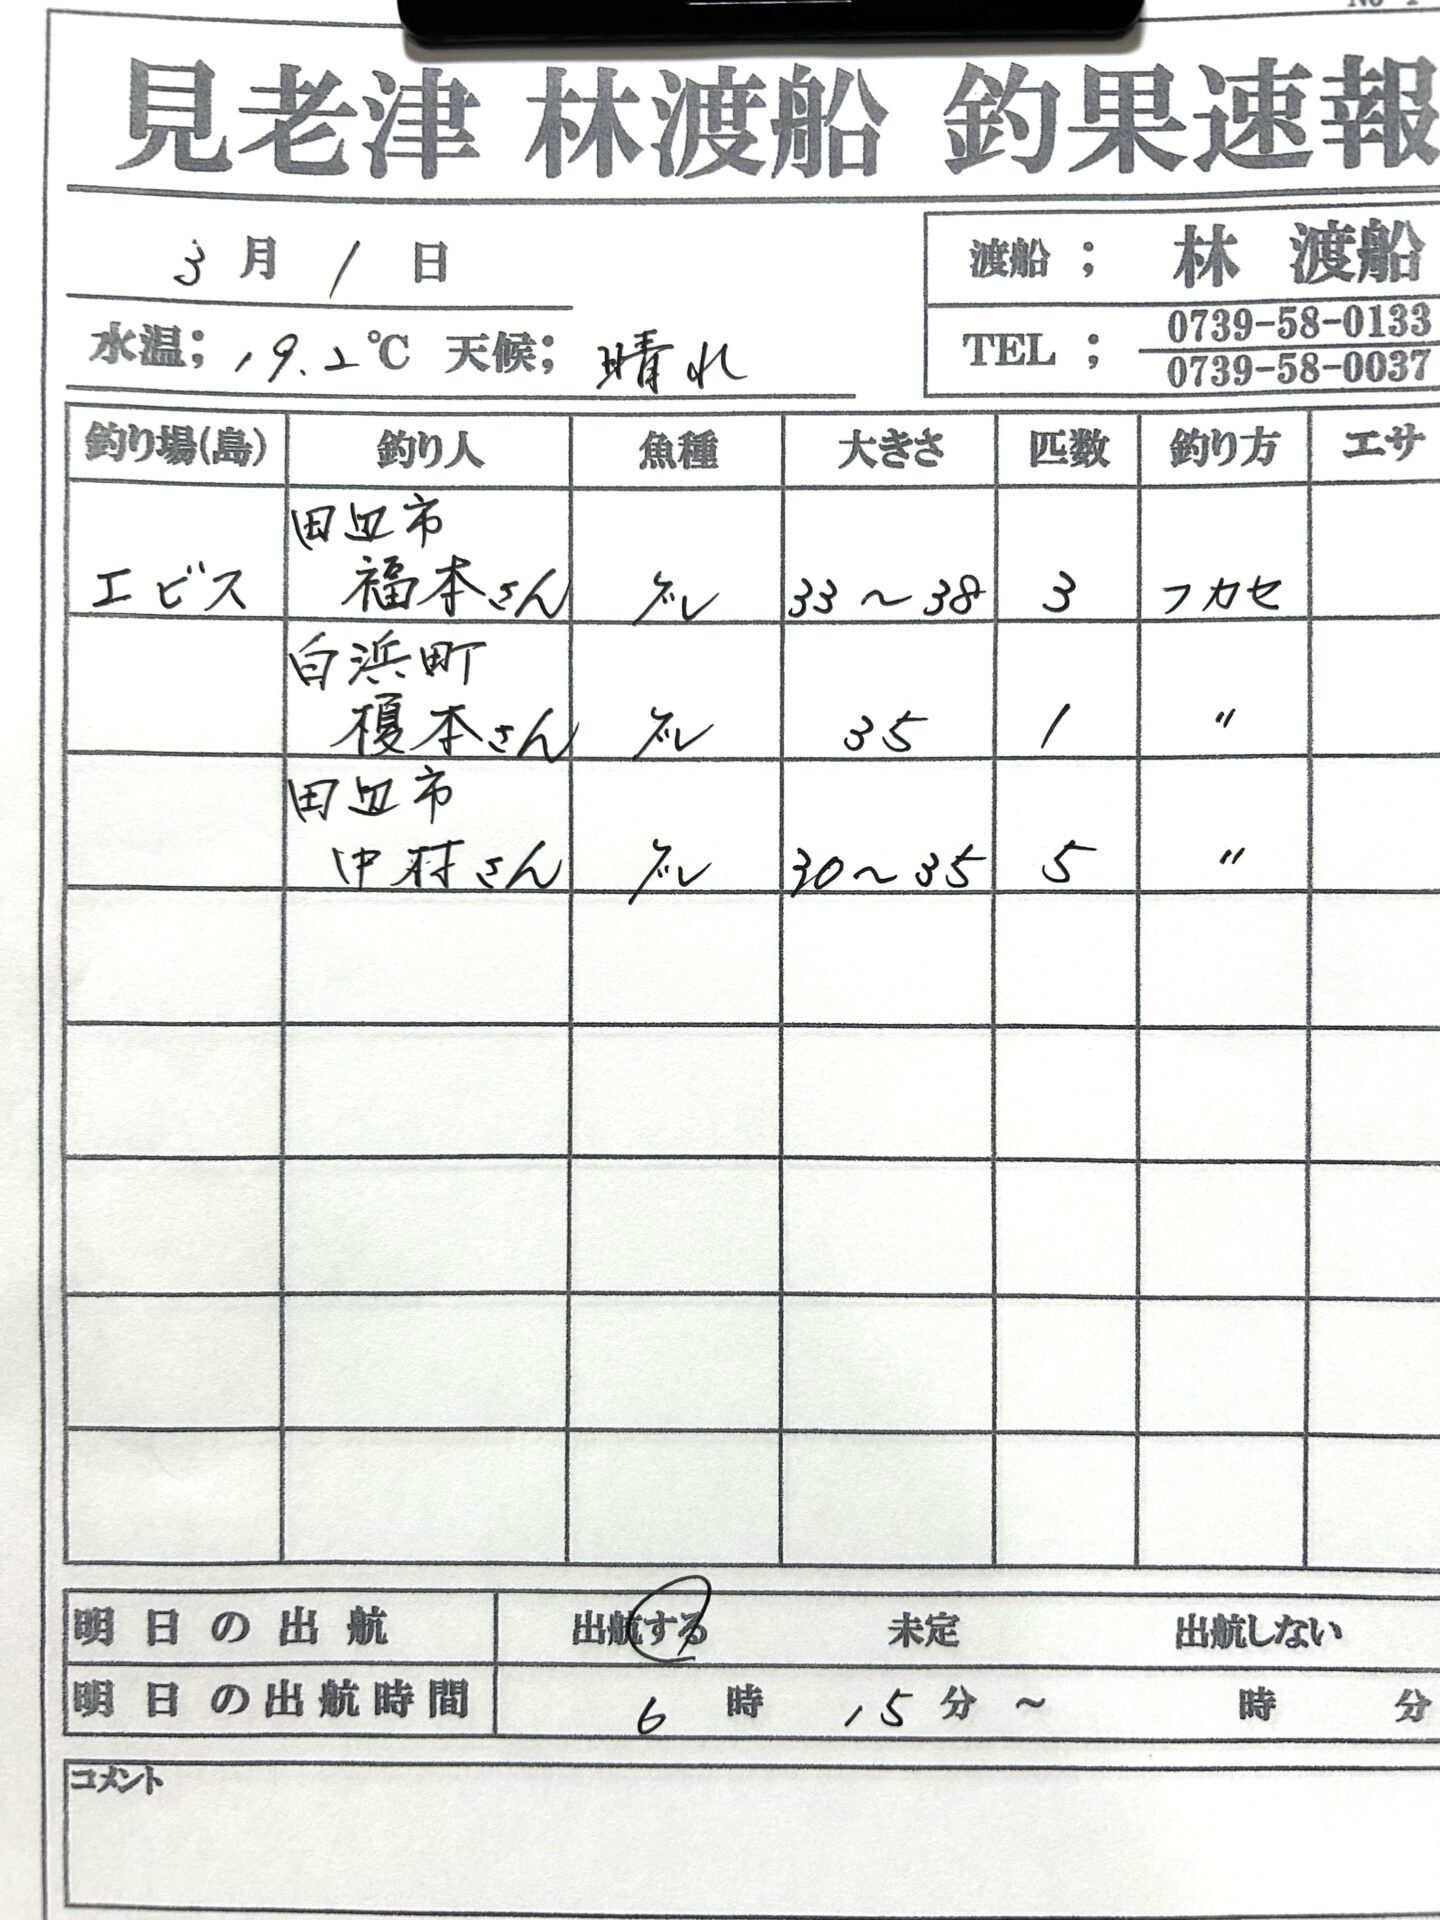 見老津 林渡船 釣果速報
3月1日
渡船 ; 林 渡船
水温; 19.2℃ 天候; 晴れ
TEL ; 0739-58-0133
0739-58-0037
釣り場(島) 釣り人 魚種 大きさ 匹数 釣り方 エサ
田辺市
エビス 福本さん グレ 33～38 3 フカセ
白浜町
榎本さん グレ 35 1 〃
田辺市
中村さん グレ 30～35 5 〃
明日の出航 出航する 未定 出航しない
明日の出航時間 6時15分～ 時 分
コメント